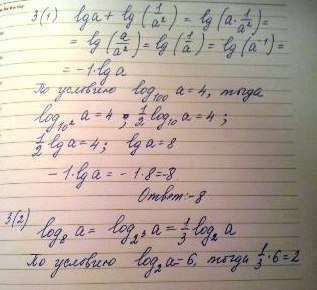 3(1) lg a + lg (1/a²) = lg (a · 1/a²) =
= lg (a/a²) = lg (1/a) = lg (a⁻¹) =
= -1 · lg a
По условию log₁₀₀ a = 4, тогда
log₁₀² a = 4 ; 1/2 log₁₀ a = 4 ;
1/2 lg a = 4 ; lg a = 8
-1 · lg a = -1 · 8 = -8
Ответ: -8
3(2)
log₈ a = log₂³ a = 1/3 log₂ a
По условию log₂ a = 6, тогда 1/3 · 6 = 2